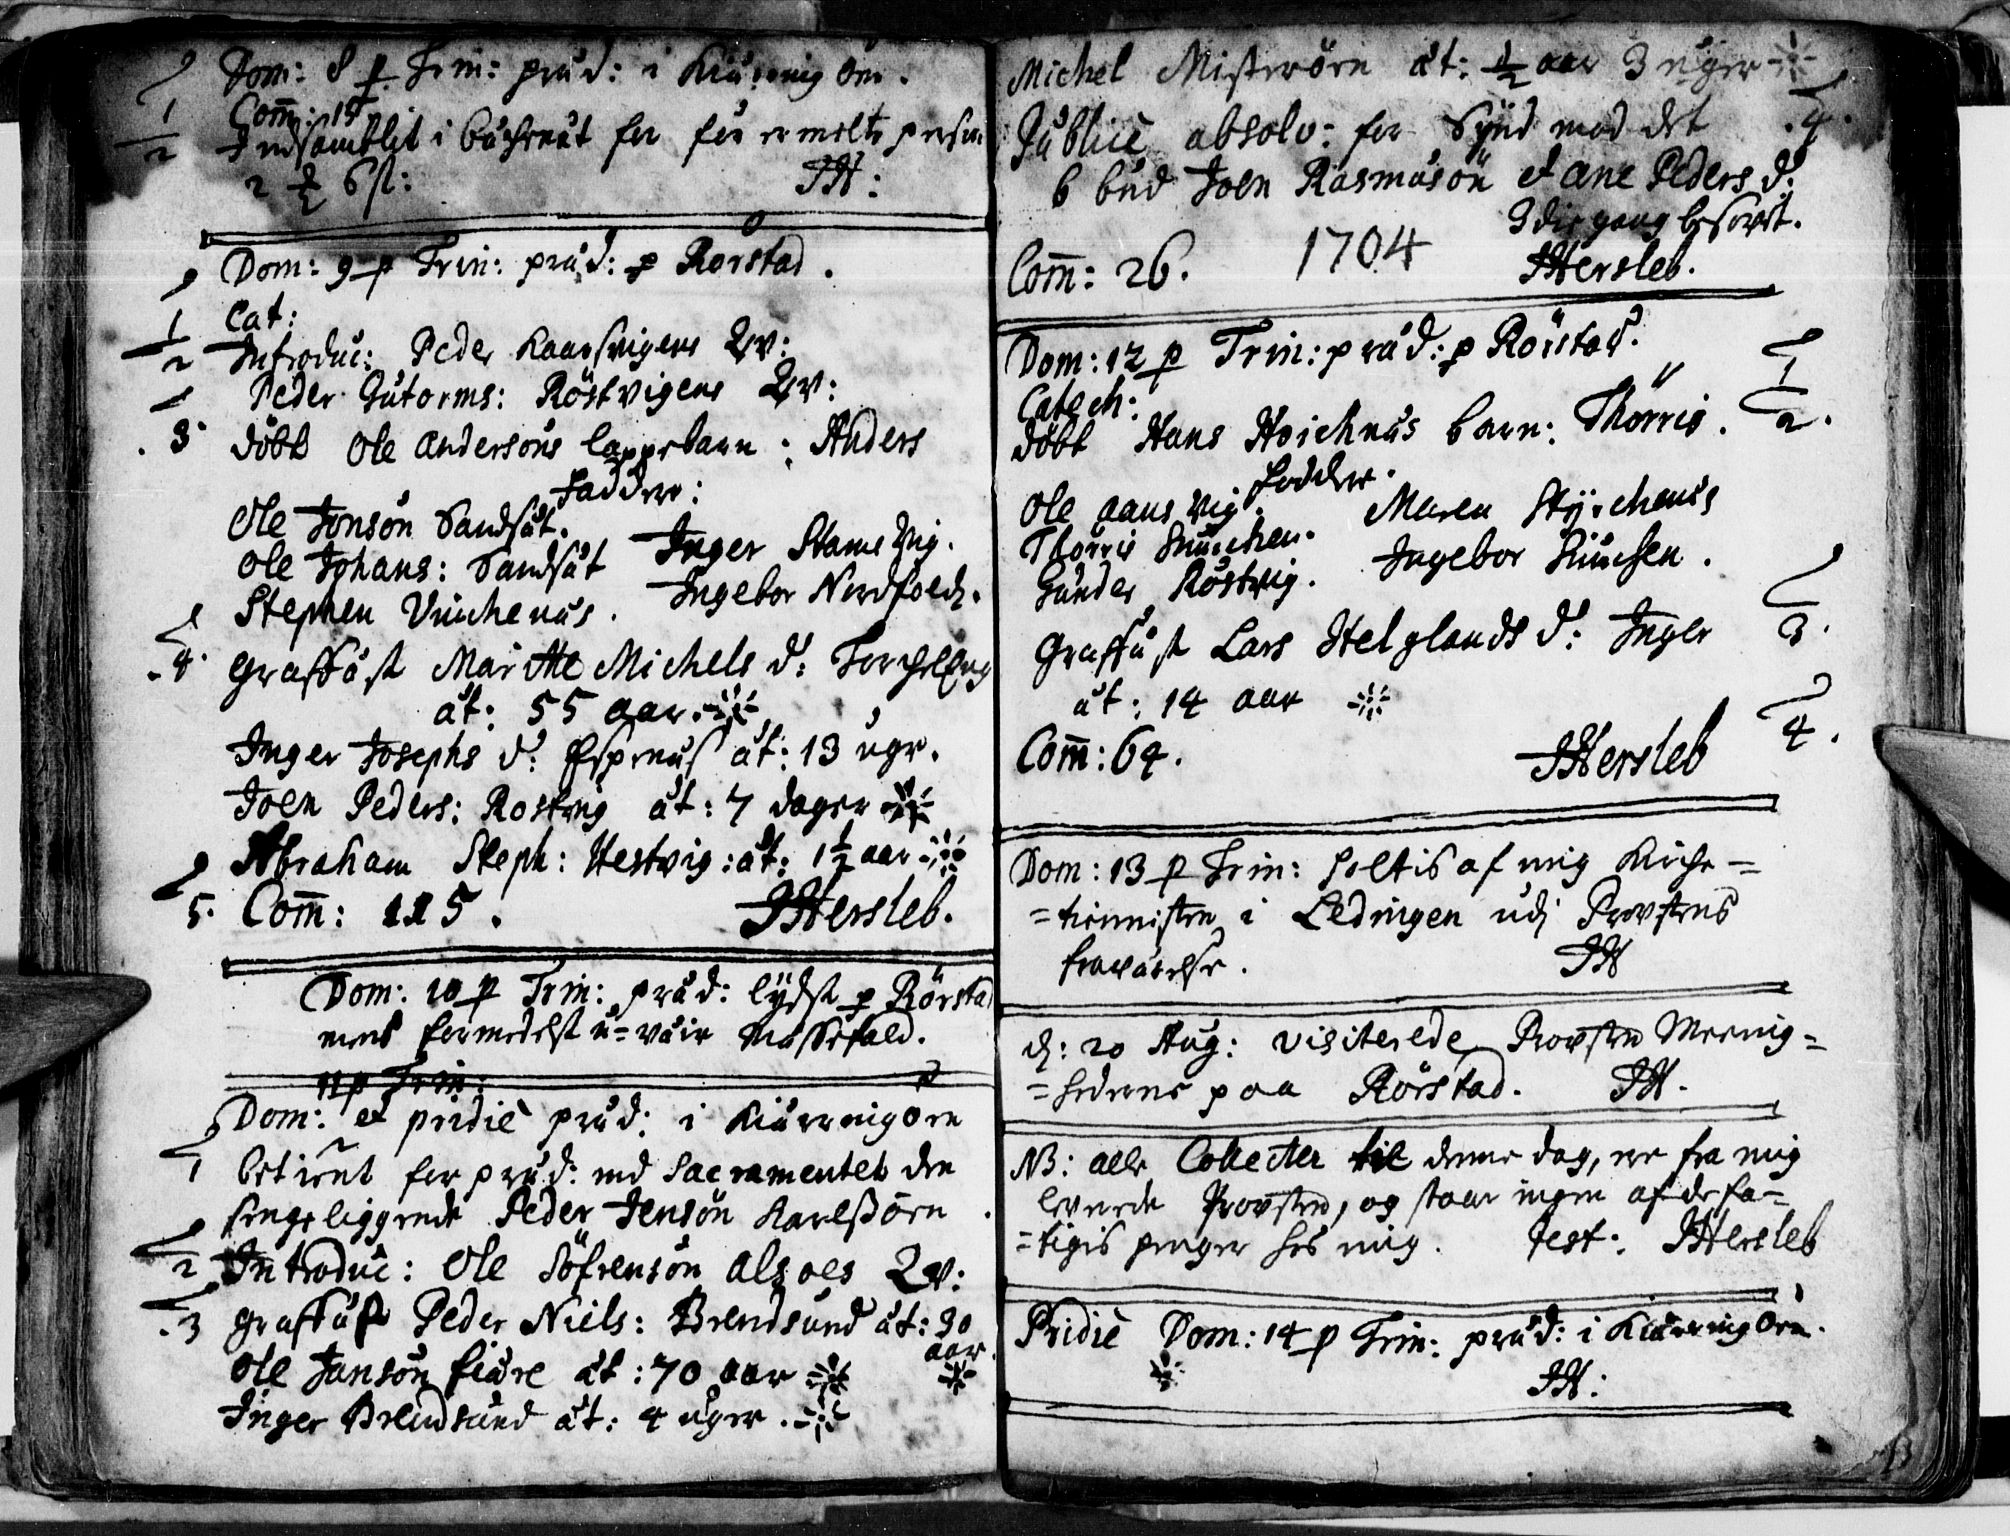 Dom: 8 p Trin: præd: i Kiærring Öen.
1 Com̄: 15
2 Indsamblet i bössenut for för ermelte person
2 ½ ß st: JH:
Dom: 9 p Trin: præd: p Rorstad.
1 Cat:
2 Introduc: Peder Kaarsvigens Qv:
Peder Gutorms: Röstvigens Qv:
3 döbt Ole Andersöns lappebarn: Anders
Faddere:
Ole Jonsön Sandsæt.
Ole Johans: Sandsæt Inger Stamsvig.
Stephen Vinchenæs. Ingebor Nordfold.
4 Graffæst Marthe Michels d: Torchel
æt: 55 aar.
Inger Josephs d: Espenæs æt: 13 uger.
Joen Peders: Rostvig æt: 7 dager
Abraham Steph: Hestvig: æt: 1½ aar
5. Com̄: 115. JHersleb.
Dom: 10 p Trin: præd: lydst p Rörstad
mens formedelst u=vair Messefald.
11 p Trin:
Dom: et pridie præd: i Kiærringöen
1 betient for præd: med Sacramentet den
sengeliggende Peder Jensön Karlsöen
2 Introduc: Ole Söfrensön Alsoes Qv:
3 Graffæst Peder Niels: Brendsund æt: 30
aar.
Ole Jansön fiære æt: 70 aar
Inger Brendsund æt: 4 uger.
Michel Misterörn æt: ½ aar 3 uger
Publice absolv: for Synd mod det 4.
6 bud Joen Rasmusön et Ane Peders d:
3die gang besovet.
Com̄: 26. 1704 JHersleb.
Dom: 12 p Trin: præd: p Rörstad.
Catech: 1
döbt Hans Hoichnæs barn: Thörris. 2.
Fadder.
Ole aans vig. Maren Styrchenæs
Thörris Hunchen. Ingebor Hunchen.
Gunder Röstvig.
Graffæst Lars Helglands d: Inger 3.
æt: 14 aar
Com̄: 64. JHersleb 4.
Dom: 13 p Trin: holtis af mig Kirche=
=tiennisten i Ledingen udj Provstens
fraværelse. JH
d: 20 Aug: visiterede Provsten Meenig=
=hedens paa Rörstad. JH.
NB: alle Collecter til denne dag, ere fra mig
leverede Provsten, og staar ingen af de fa=
=tigis penger hos mig. Test: JHersleb
Pridie Dom: 14 p Trin: præd: i Kiærring Öen.
JH:
13